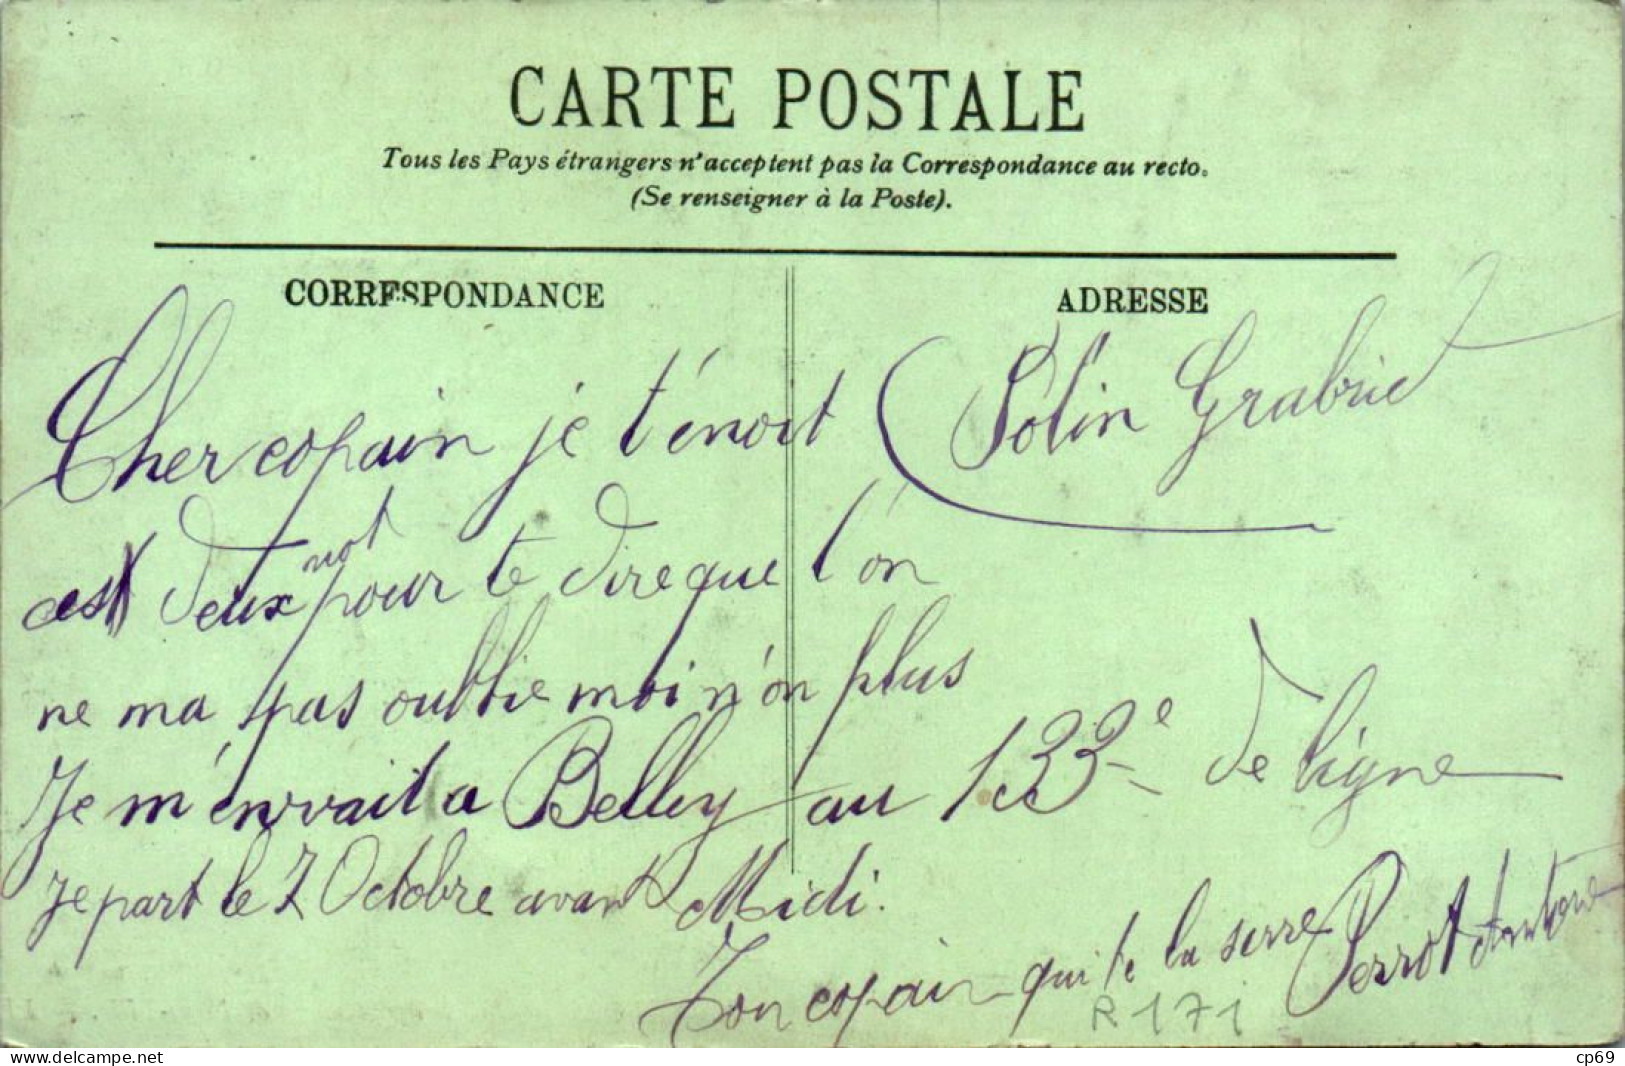 CARTE POSTALE
Tous les Pays étrangers n'acceptent pas la Correspondance au recto.
(Se renseigner à la Poste).
CORRESPONDANCE
ADRESSE
Solin Grabriel
Cher copain je t'énvoit
ces deux mot pour te dire que l'on
ne ma pas oublie moi n'on plus
Je m'envait a Belley au 133e de ligne
je part le 7 Octobre avant Midi.
Ton copain qui te la serre Perrot Antoine
R 171
delcampe.net
cp69